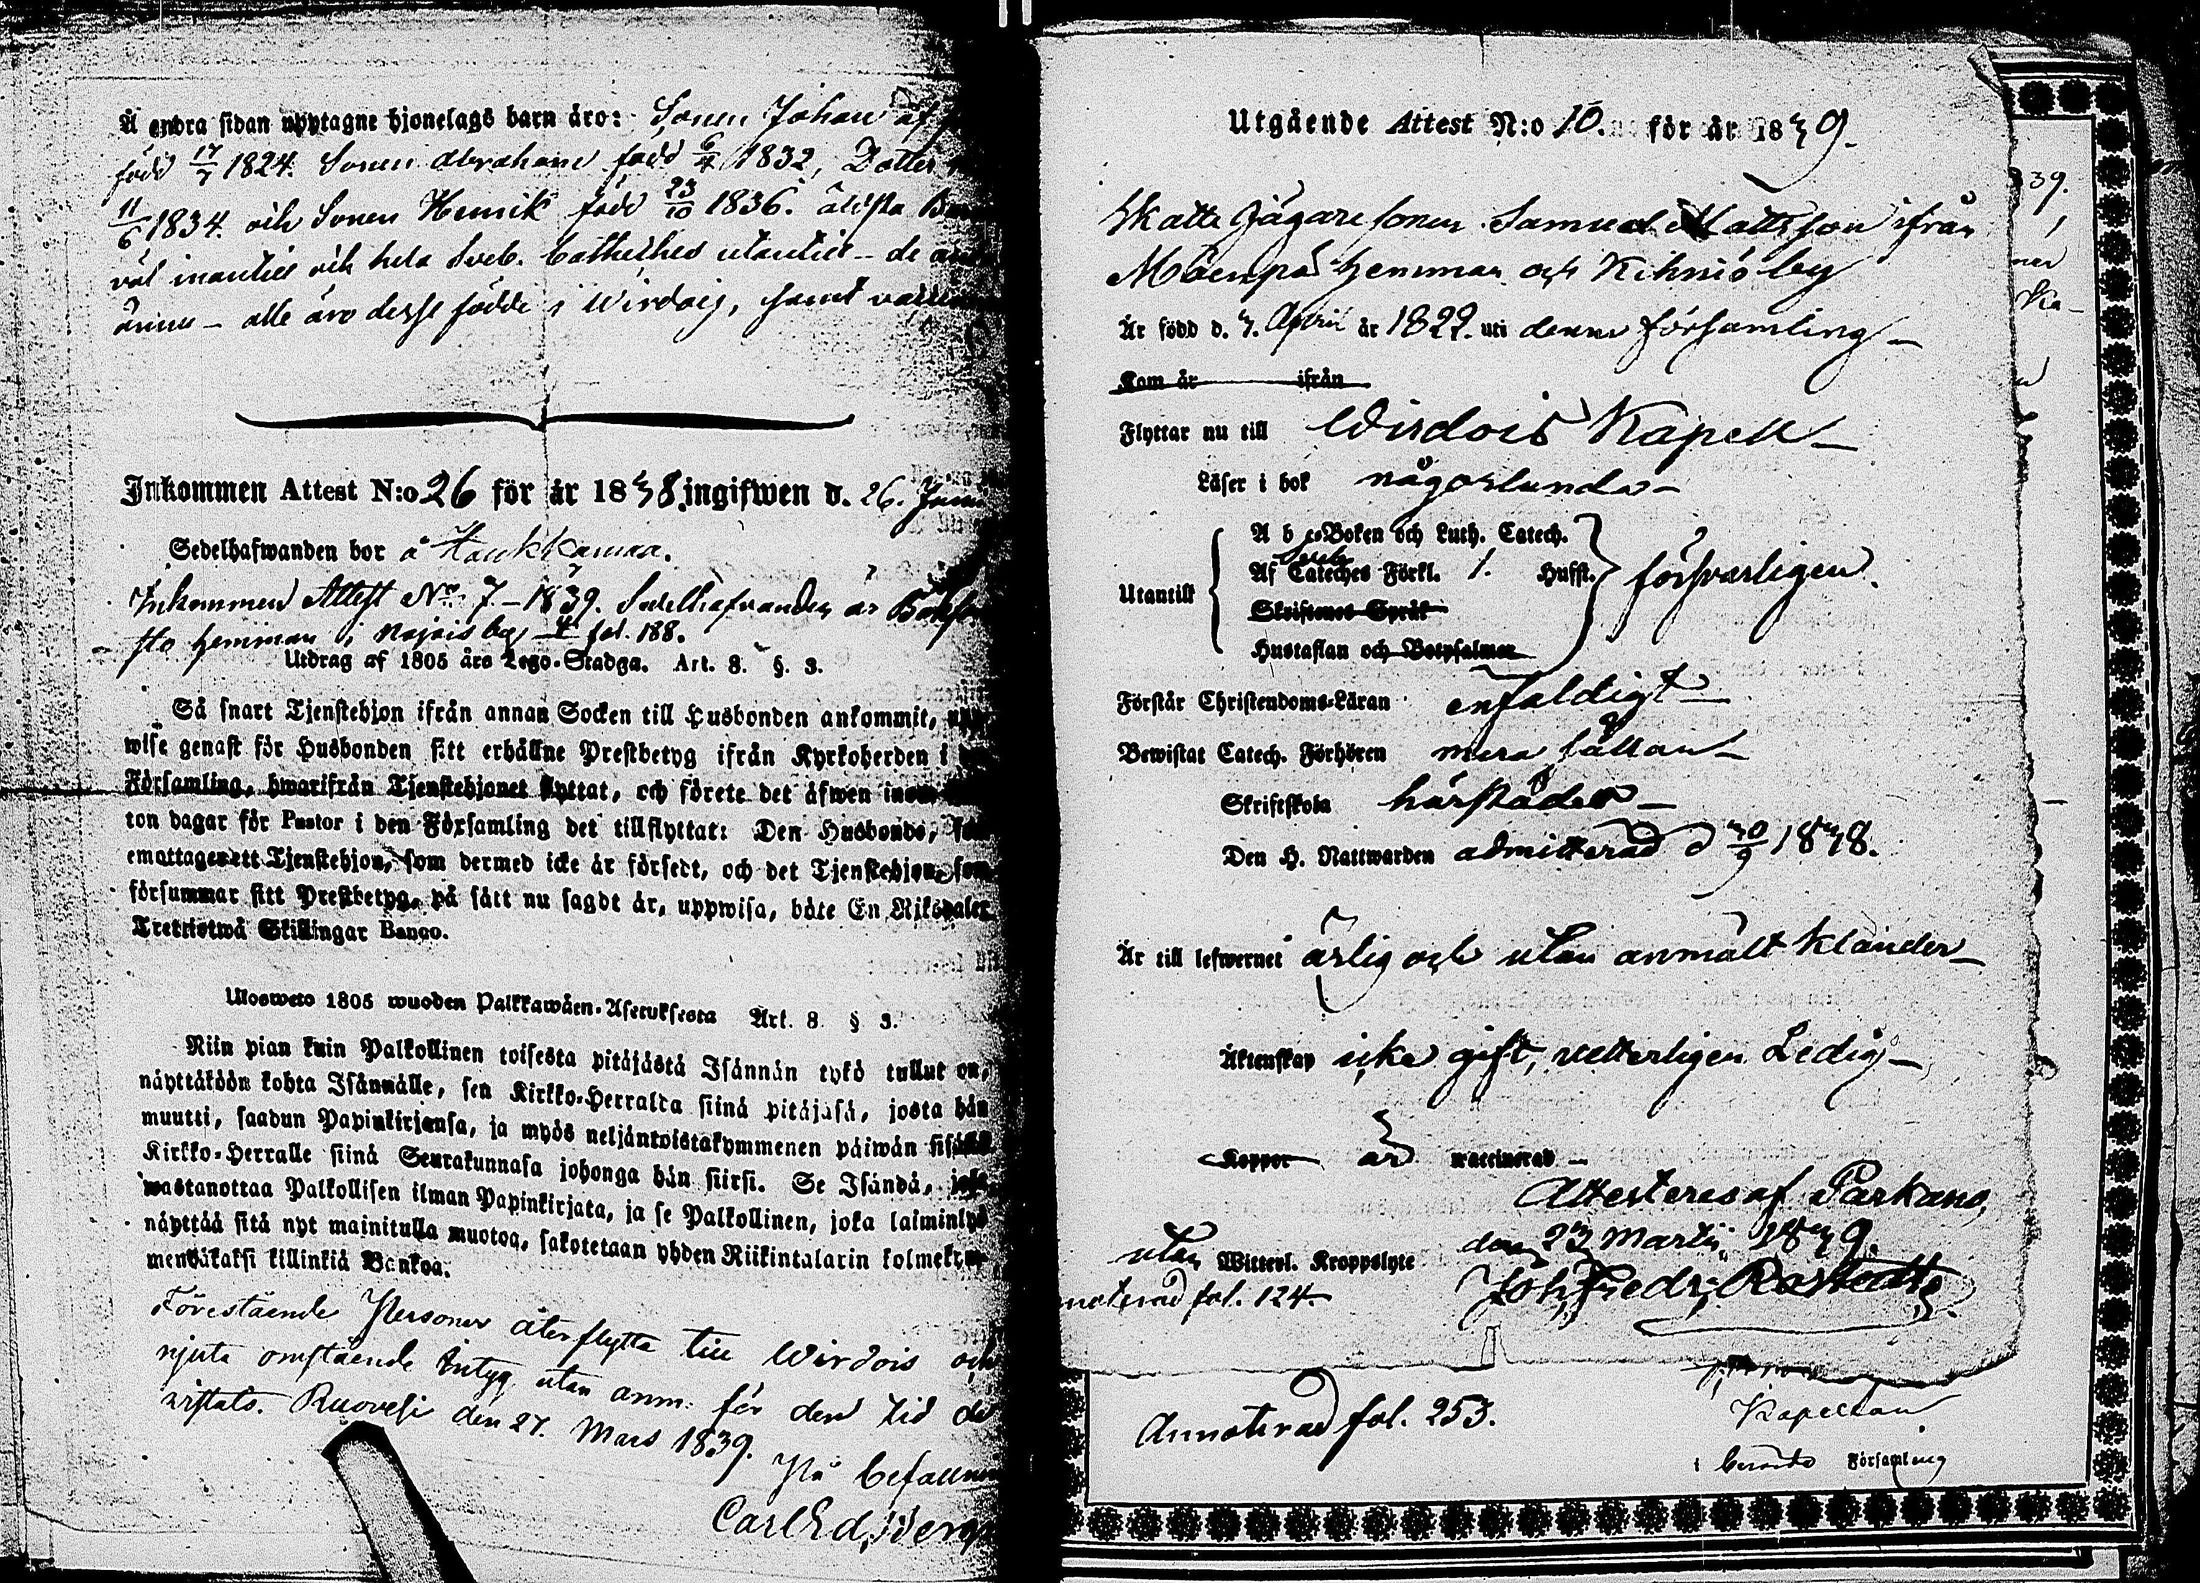 Å andra sidan upptagne hjonelags barn äro: Sonen Johan
född 17/7 1824. Sonen Abraham född 6/4 1832, Dotter
11/6 1834. och Sonen Henrik född 23/10 1836. äldsta
väl inantill och hela Sveb. Catheches utantill – de
ännu – alle äro desse födde i Wirdois, samt
Inkommen Attest N:o 26 för år 1838. ingifwen d. 26. Juni
Sedelhafwanden bor å Haukkamaa.
Inkommen Attest No. 7. – 1839. Sedelhafvanden är
sto hemman i by 4 fol. 188.
Utdrag af 1805 års Lego-Stadga. Art. 8. §. 3.
Så snart Tjenstehjon ifrån annan Socken till Husbonden ankommit, upp-
wise genast för Husbonden sitt erhållne Prestbetyg ifrån Kyrkoherden i
Församling, hwarifrån Tjenstehjonet flyttat, och förete det äfwen inom
ton dagar för Pastor i den Församling det tillflyttat: Den Husbonde, som
emottager ett Tjenstehjon, som dermed icke är försedt, och det Tjenstehjon, som
försummar sitt Prestbetyg, på sätt nu sagdt är, uppwisa, böte En Riksdaler
Tretriotwå Skillingar Banco.
Ulosweto 1805 wuoden Palkkawäen-Asetuksesta Art. 8 § 3.
Niin pian kuin Palkollinen toisesta pitäjästä Isännän tykö tullut on,
näyttäköön kohta Isännälle, sen Kirkko-Herralta siinä pitäjäsä, josta hän
muutti, saadun Papinkirjansa, ja myös neljäntoistakymmenen päiwän sisällä
Kirkko-Herralle siinä Seurakunnasa johonga hän siirsi. Se Isändä, joka
wastanottaa Palkollisen ilman Papinkirjata, ja se Palkollinen, joka laiminlyö
näyttää sitä nyt mainitulla muotoa, sakotetaan yhden Riikintalarin kolmekym-
mendäkaksi killinkiä Bankoa.
Förestående Personer återflytta till Wirdois och
njuta omstående Intyg utan anm. för den tid de
vistats. Ruovesi den 27. Mars 1839.
På befallning
Carl Ed.
Utgående Attest N:o 10. för år 1839.
Skatte Jägare sonen Samuel Mattsson ifrån
Mäenpää hemman och Kihniö by
Är född d. 7. April år 1822. uti denna församling –
Kom år ifrån
Flyttar nu till Wirdois Kapell –
Läser i bok någorlunda –
Utantill
A b c-Boken och Luth. Catech.
Sveb.
Af Cateches Förkl. 1. Hufst.
Skriftenes Språk
Hustaflan och Botpsalmer
försvarligen.
Förstår Christendoms-Läran enfaldigt –
Bewistat Catech. Förhören mera sällan –
Skriftskola härstädes –
Den H. Nattwarden admitterad d 30/9 1838.
Är till lefwernet ärlig och utan anmält klander –
Äktenskap icke gift, vetterligen Ledig –
Koppor är waccinerad –
Attesteras af Parkano,
den 23 Martii 1839.
utan Witterl. Kroppslyte
noterad fol. 124.
Joh. Fredr.
Annoterad fol. 253.
Kapellan
i berörda Församling
39.